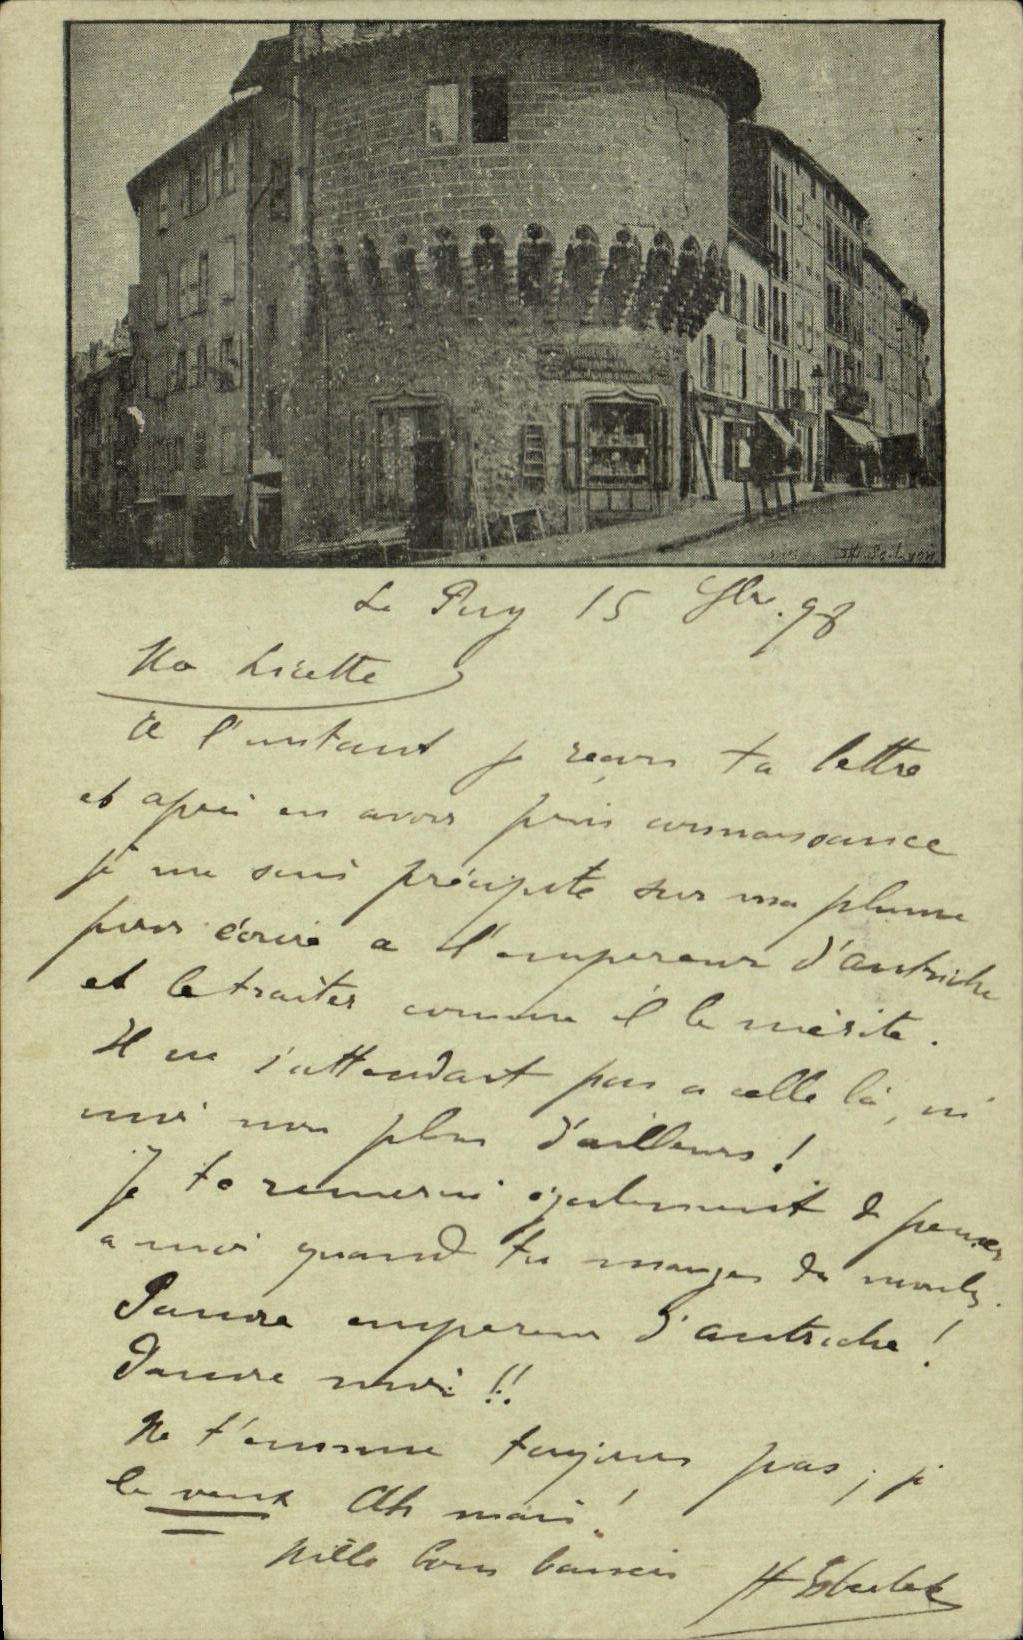 Le Puy 15 98
Ma Lisette
A l'instant je reçois ta lettre
et après en avoir pris connaissance
je me suis précipité sur ma plume
pour écrire a l'empereur d'autriche
et le traiter comme il le mérite.
Il ne s'attendait pas a celle là, ni
moi non plus d'ailleurs !
Je te remercie également de penser
a moi quand tu manges des moules.
Pauvre empereur d'autriche !
Pauvre moi !!
Ne t'ennuie toujours pas ; je
le veux Ah mais !
Mille bons baisers